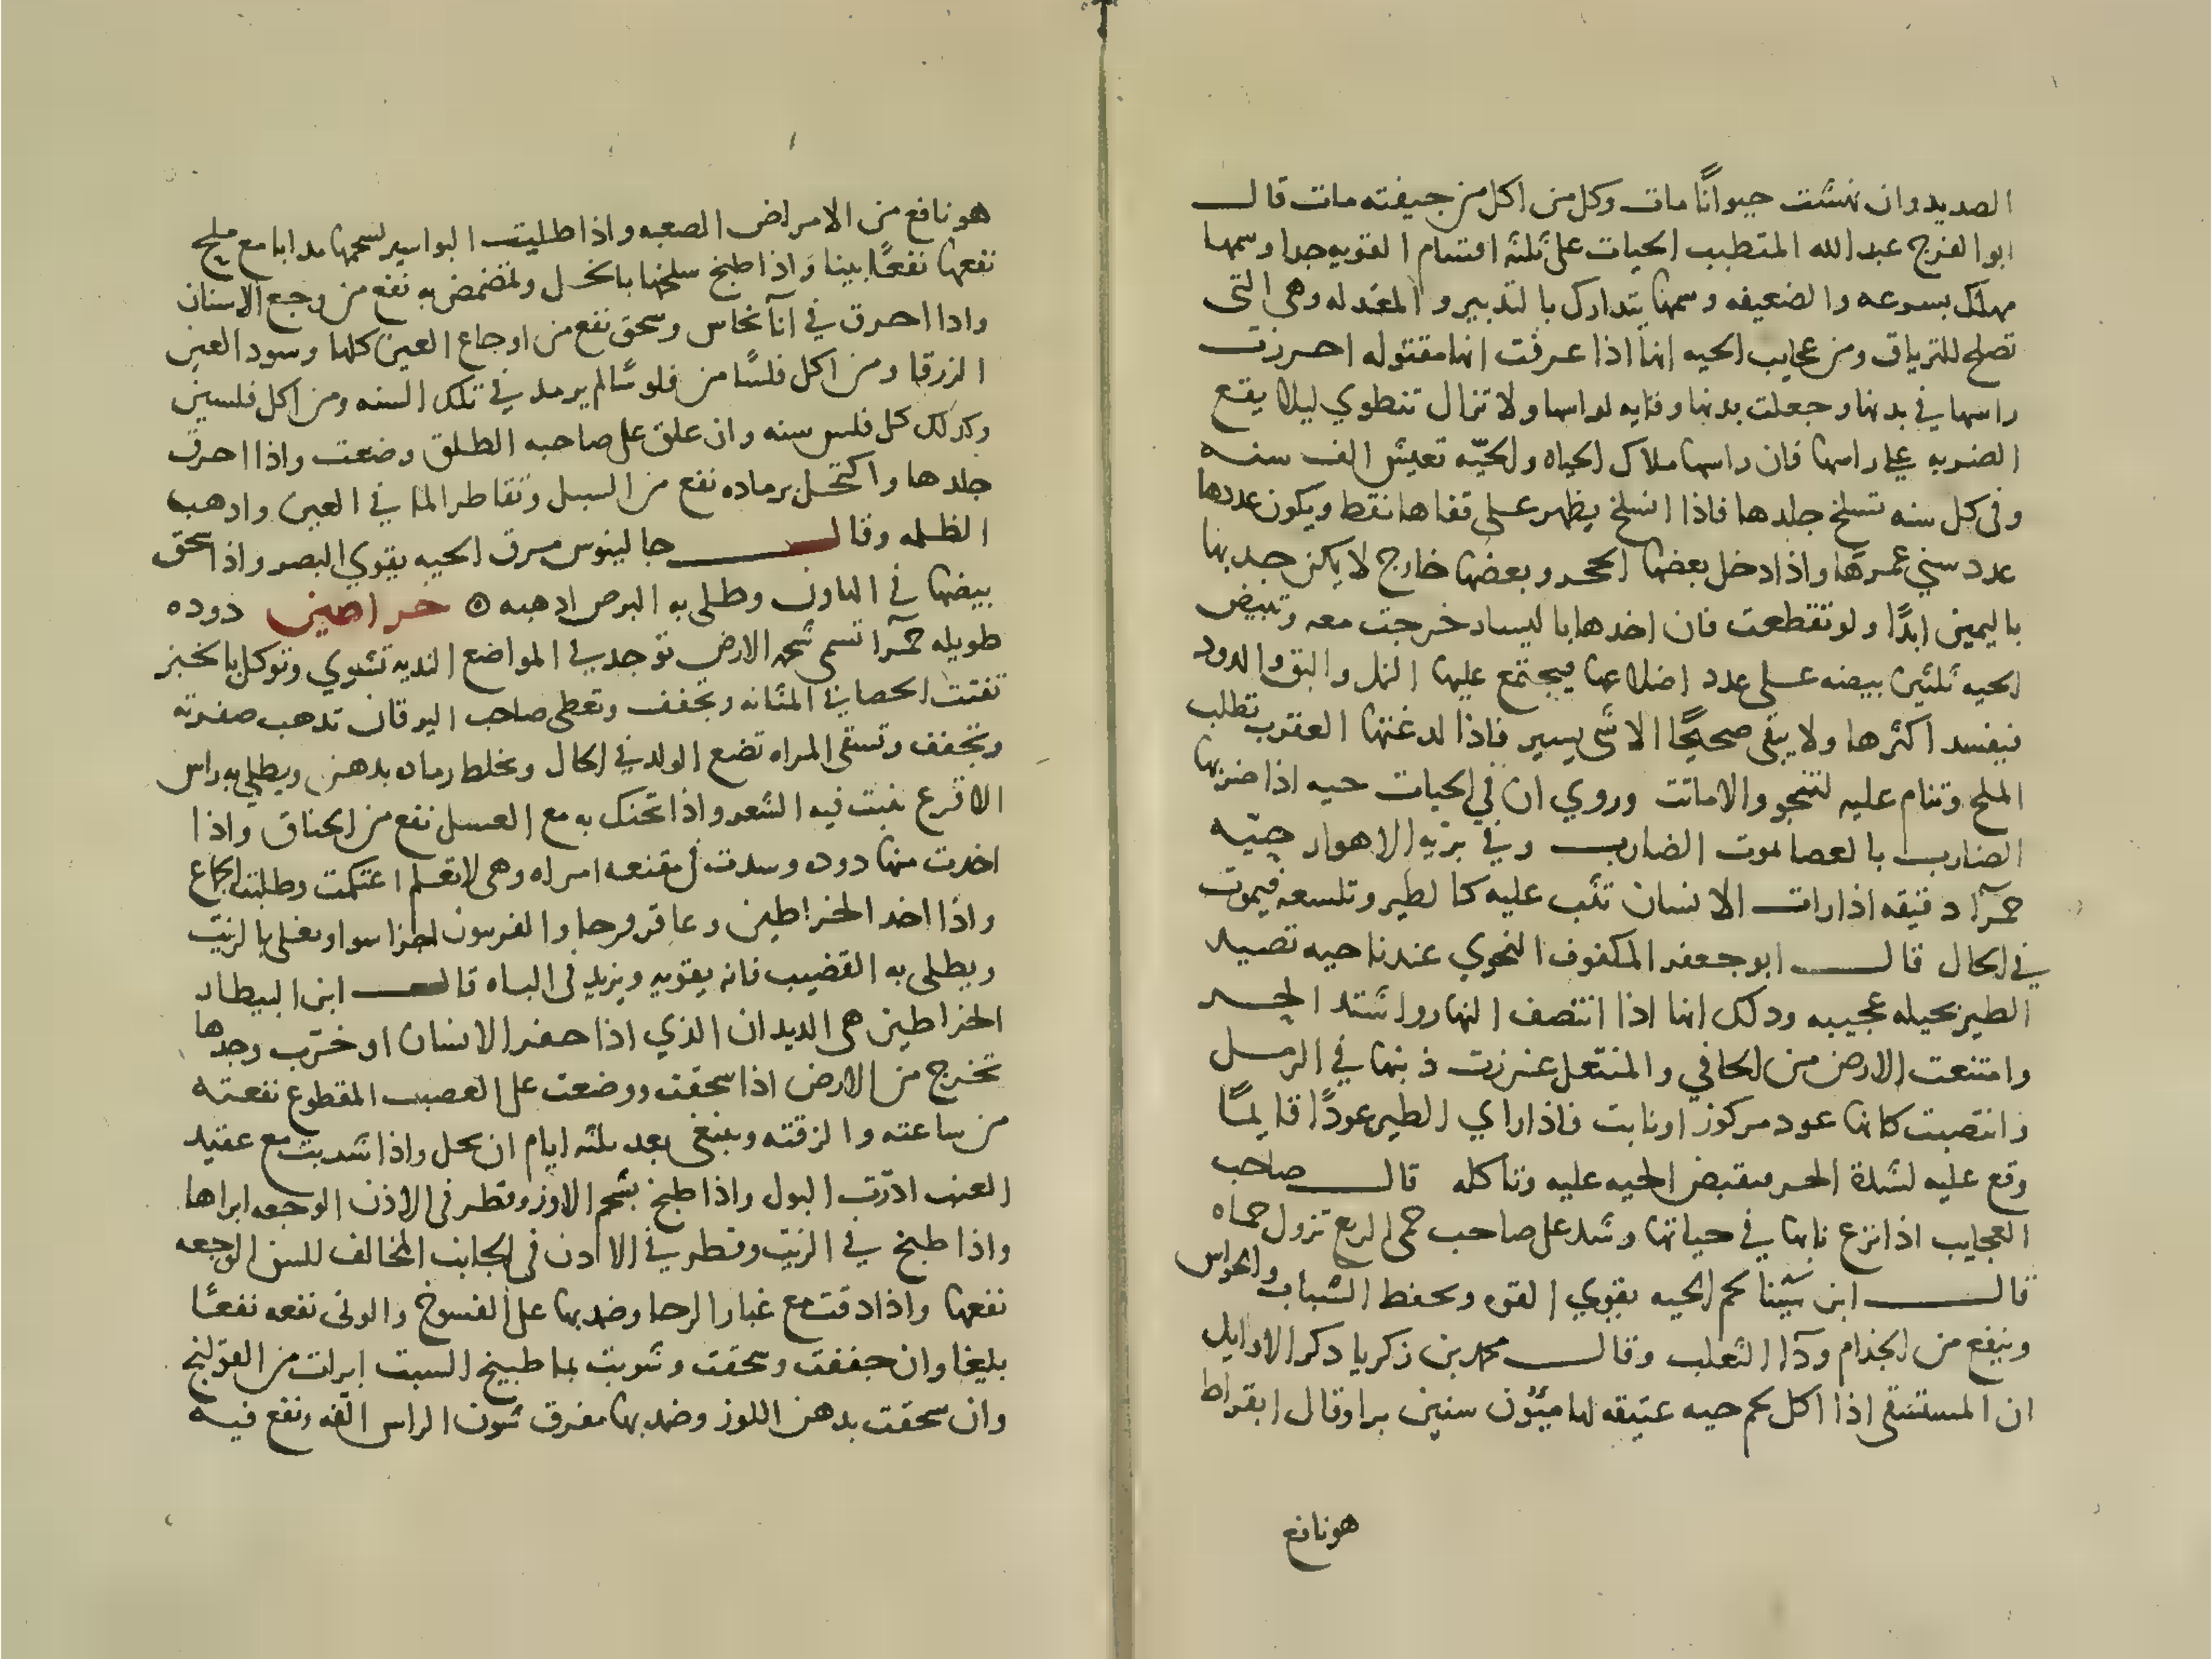 الصديد وان نهشت حيوانًا مات وكل من اكل من جيفته مات قال
ابو الفرج عبد الله المتطبب الحيات على ثلثه اقسام القويه جدا وسمها
مهلك بسرعه والضعيفه وسمها يتدارك بالتدبير والمعتدله وهى التى
تصلح للترياق ومن عجايب الحيه انها اذا عرفت انها مقتوله احرزت
راسها في بدنها وجعلت بدنها وقايه لراسها ولا تزال تنطوي ليلا يقع
الضربه على راسها فان راسها ملاك الحياه والحيّه تعيش الف سنه
وفى كل سنه تسلخ جلدها فاذا انسلخ يظهر على قفاها نقط ويكون عددها
عدد سني عمرها واذا دخل بعضها الجحر وبعضها خارج لا يمكن جدبها
باليمين ابدًا ولو تقطعت فان اخدها باليسار خرجت معه وتبيض
الحيه ثلثين بيضه على عدد اضلاعها فيجتمع عليها النمل والبق والدود
فيفسد اكثرها ولا يبقى صحيحًا الا شى يسير فاذا لدغتها العقرب تطلب
الملح وتنام عليه لتنجو والا ماتت وروي ان في الحيات حيه اذا ضربها
الضارب بالعصا لموت الضارب وفي بريه الاهواز حيّه
حمرآ دقيقه اذا رات الانسان تثب عليه كالطير وتلسعه فيموت
في الحال قال ابو جعفر المكفوف النحوي عندنا حيه تصيد
الطير بحيله عجيبه ودلك انها اذا انتصف النهار واشتد الحر
وامتنعت الارض من الحافي والمنتعل غرزت ذنبها في الرمل
وانتصبت كانها عود مركوز او نابت فاذا راي الطير عودًا قايمًا
وقع عليه لشدة الحر فتقبض الحيه عليه وتاكله قال صاحب
العجايب اذا نزع نابها في حياتها وشد على صاحب حمى الربع تزول حماه
قال ابن سينا لحم الحيه يقوي القوه ويحفظ الشباب والحواس
وينفع من الجذام ودآ الثعلب وقال محمد بن زكريا دكر الاوايل
ان المستسقى اذا اكل لحم حيه عتيقه لها ميئون سنين برا وقال ابقراط
هو نافع
هو نافع من الامراض الصعبه واذا طليت البواسير لشحمها مدابا مع ملح
نفعها نفعًا بينا واذا طبخ سلخها بالخل وتمضمض به نفع من وجع الاسنان
وادا احرق في آنآ نحاس وسحق نفع من اوجاع العين كلها وسود العين
الزرقا ومن اكل فلسًا من فلوسًا لم يرمد في تلك السنه ومن اكل فلسين
وكدلك كل فلس سنه وان علق على صاحبه الطلق وضعت واذا احرق
جلدها واكتحل برماده نفع من السبل وتقاطر الما في العين وادهب
الظلمه وقال جالينوس مرق الحيه يقوي البصر واذا سحق
بيضها في الهاون وطلى به البرص ادهبه ۞ خراطين دوده
طويله حمرآ تسمى شحمه الارض توجد في المواضع النديه تشوي وتوكل بالخبز
تفتت الحصا في المثانه وتجفف وتعطى صاحب اليرقان تدهب صفرته
وتجفف وتسقى المراه تضع الولد في الحال ويخلط رماده بدهن ويطلى به راس
الاقرع ينبت فيه الشعر واذا تحنك به مع العسل نفع من الخناق واذا
اخدت منها دوده وسدت في مقنعه امراه وهى لا تعلم اغتلمت وطلبت الجماع
واذا اخد الخراطين وعاقر قرحا والفرسون اجزا سوا ويغلى بالزيت
ويطلى به القضيب فانه يقويه ويزيد فى الباه قال ابن البيطار
الخراطين هى الديدان الذي اذا حفر الانسان او خرب وجدها
تخرج من الارض اذا سحقت ووضعت على العصب المقطوع نفعته
من ساعته والزقته وينبغى بعد ثلثه ايام ان يحل واذا شربت مع عقيد
العنب ادرّت البول واذا طبخ بشحم الاوز وقطر فى الاذن الوجعه ابراها
واذا طبخ في الزيت وقطر في الادن فى الجانب المخالف للسن الوجعه
نفعها واذا دقت مع غبار الرحا وضمد بها على الفسوخ والوثى نفعه نفعًا
بليغا وان جففت وسحقت وشربت بما طبيخ السبت ابرات من القولنج
وان سحقت بدهن اللوز وضمد بها مفرق شون الراس الفه ونفع فيه